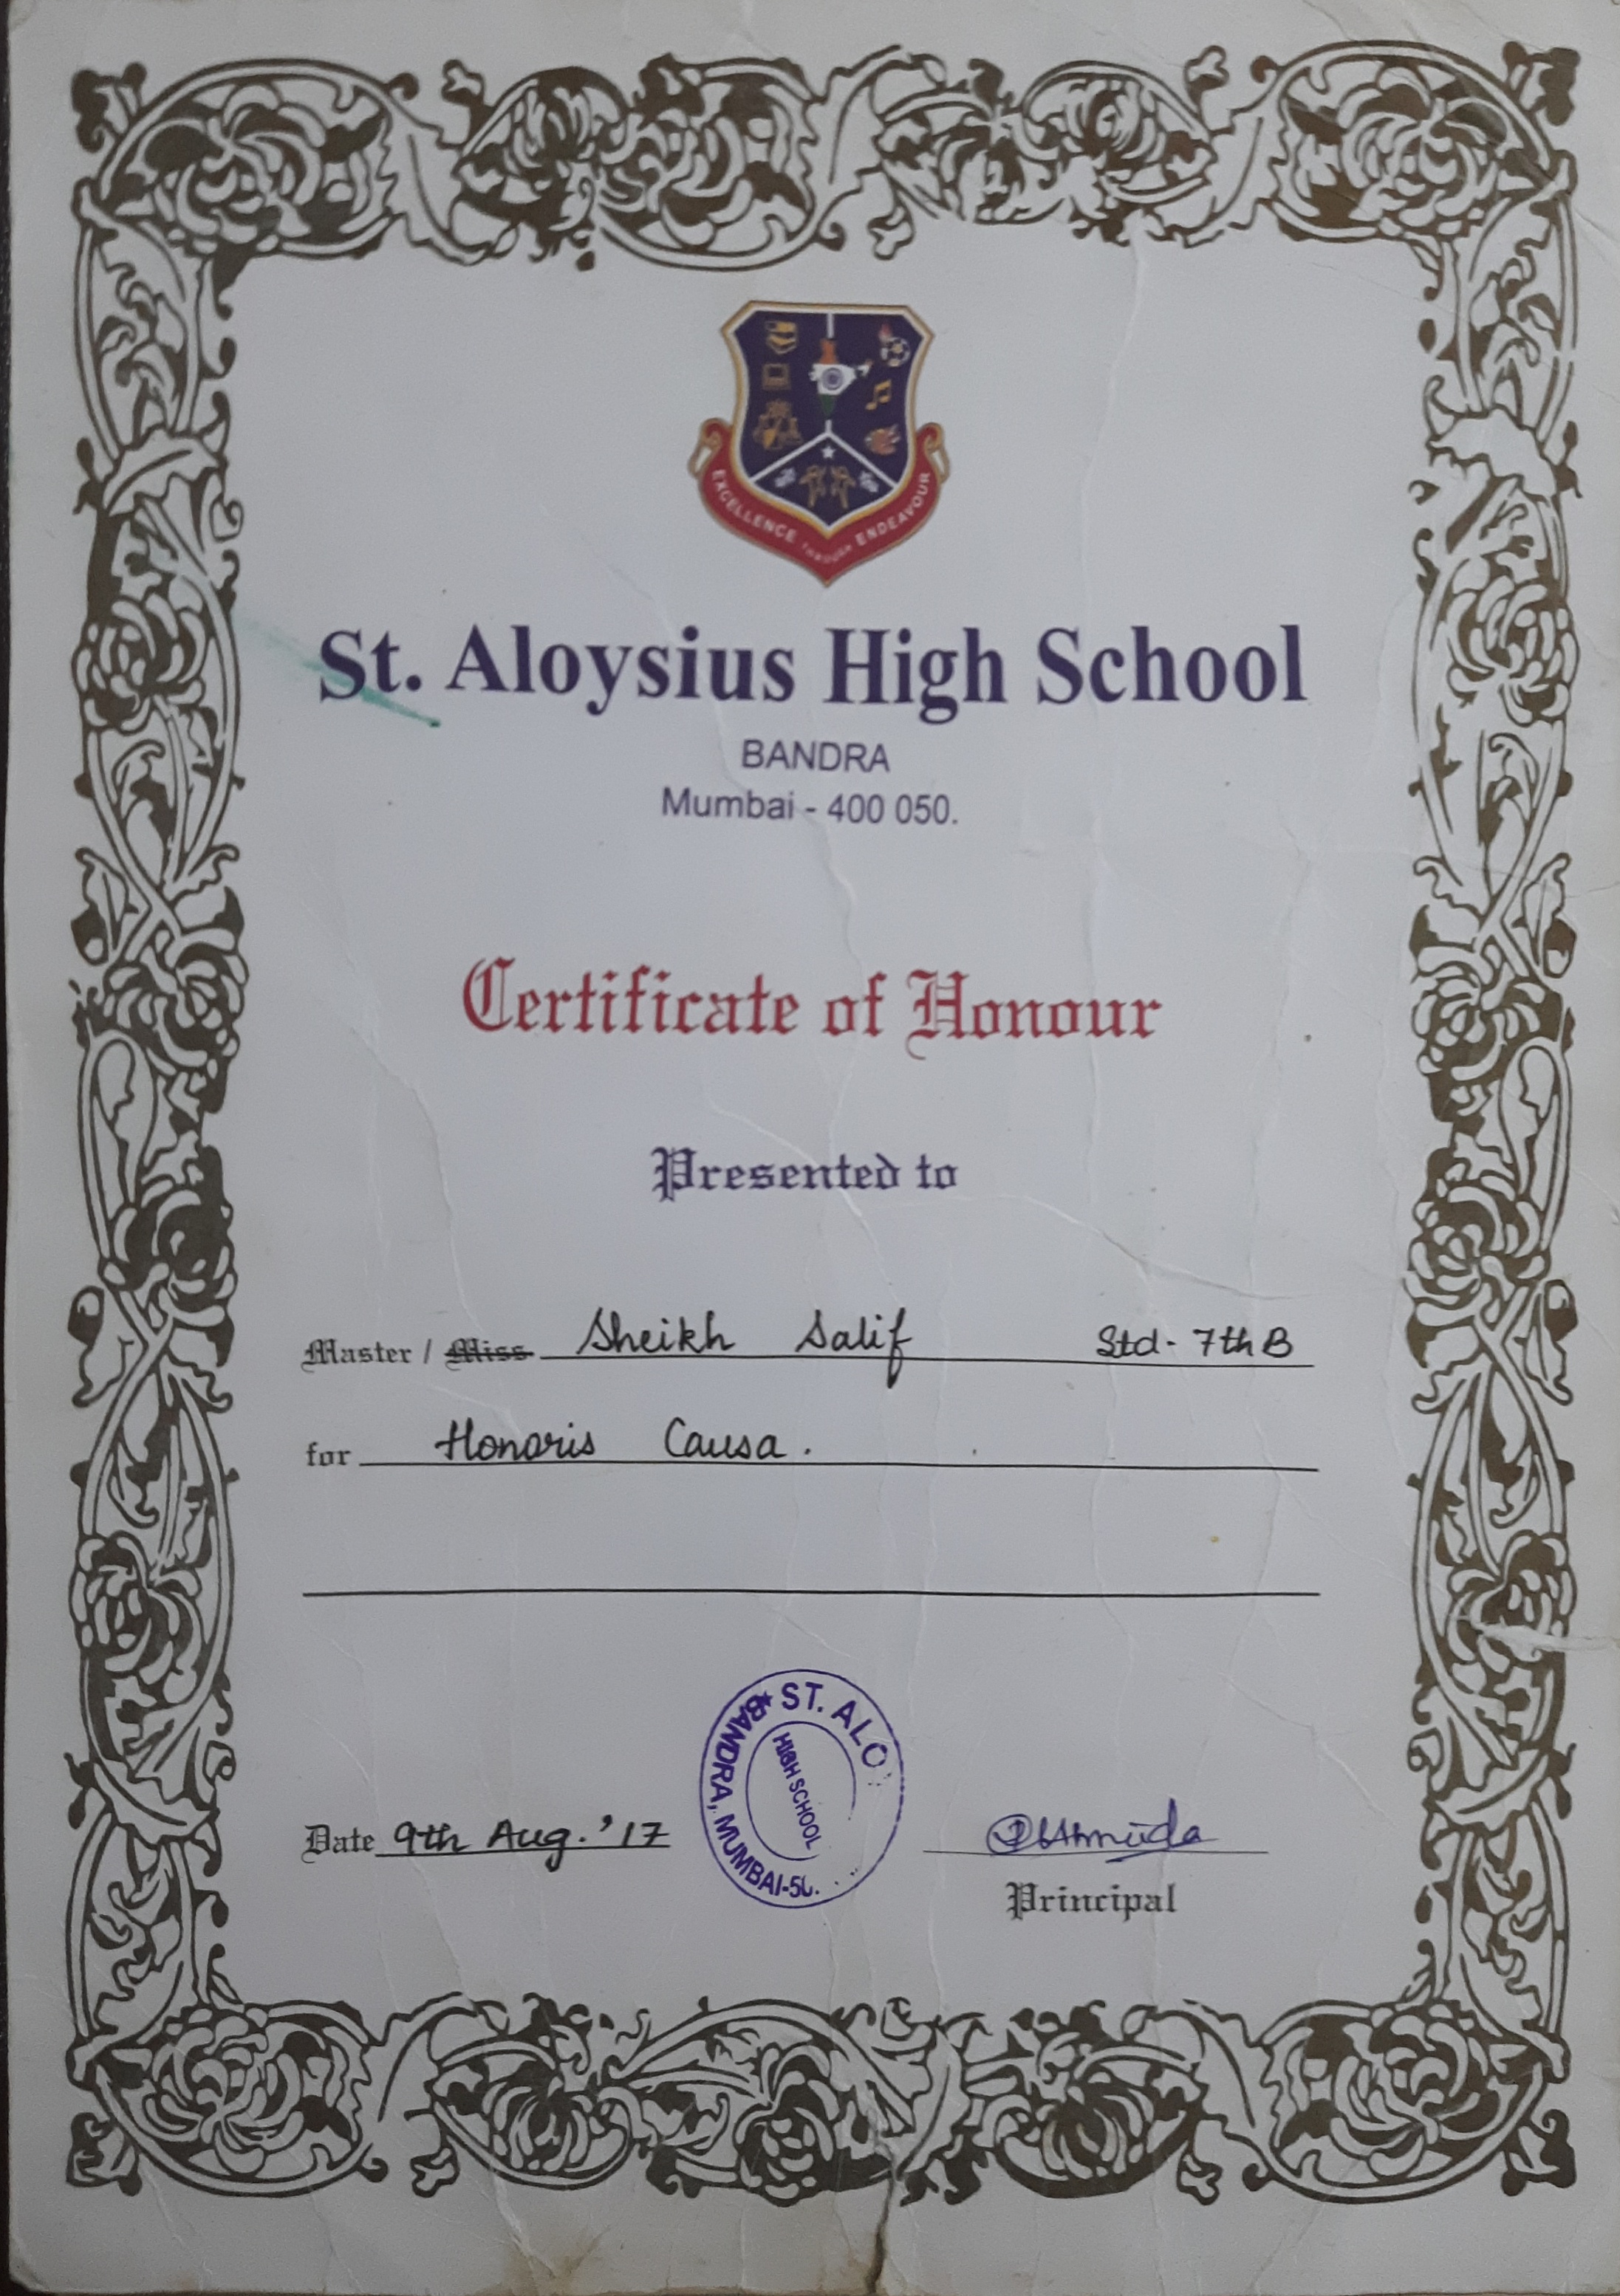 EXCELLENCE THROUGH ENDEAVOUR
St. Aloysius High School
BANDRA
Mumbai - 400 050.
Certificate of Honour
Presented to
Master / Miss Sheikh Salif Std- 7th B
for Honoris Causa.
ST. ALO
BANDRA, MUMBAI-50.
HIGH SCHOOL
Date 9th Aug. '17
Principal